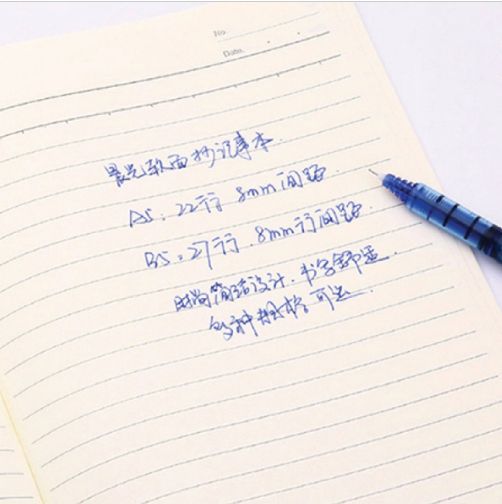 No.
Date.
晨光软面抄记事本
A5: 22行 8mm间距.
B5: 27行. 8mm行间距.
时尚简洁设计. 书写舒适.
多种规格可选.